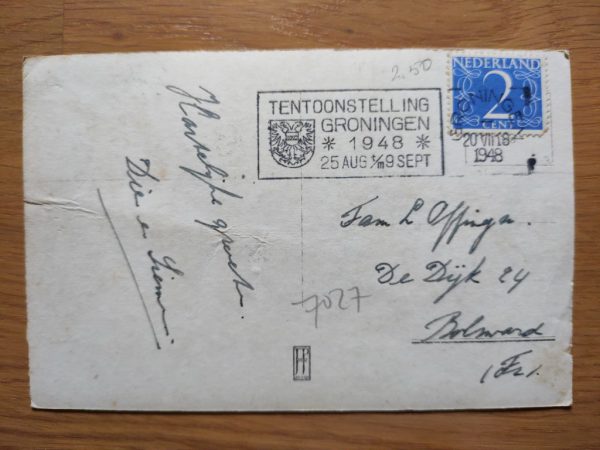 2.50
NEDERLAND
2
CENT
TENTOONSTELLING
GRONINGEN
* 1948 *
25 AUG t/m 9 SEPT
20 VII 18
1948
Hartelijke groet.
Die en Siem
Fam L Offinga.
De Dijk 24
Bolsward
(Fr).
7027